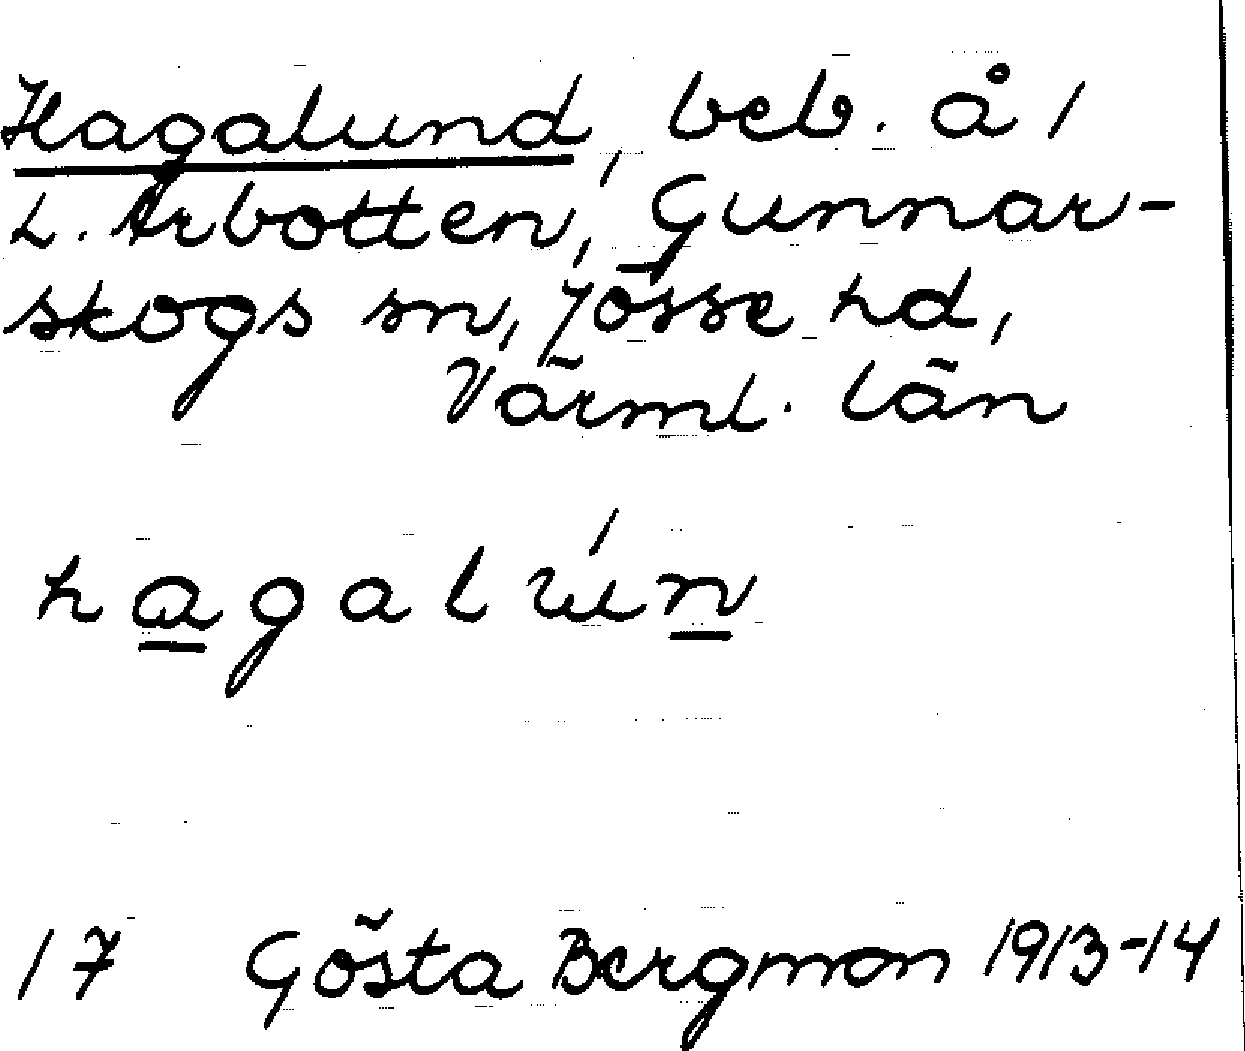 Hagalund, beb. å 1
L. Årbotten, Gunnar-
skogs sn, Jösse hd,
Värml. län
hagalún
17 Gösta Bergman 1913-14